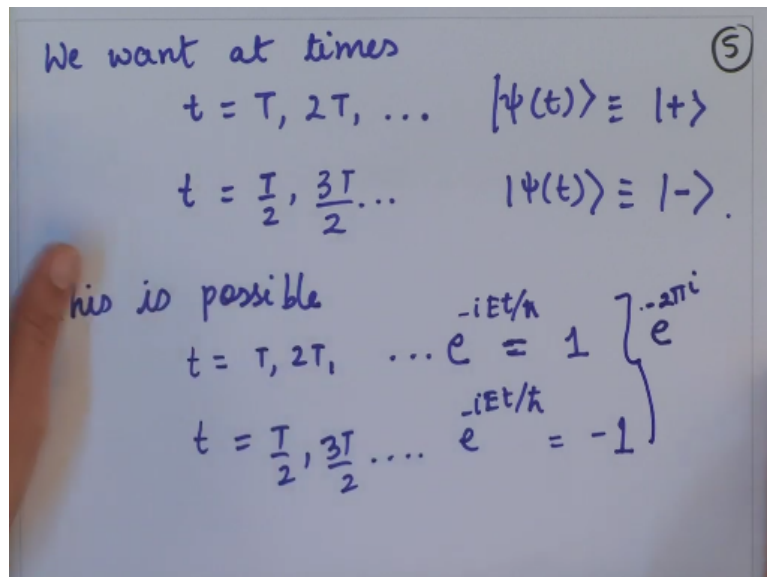 We want at times ⑤
t = T, 2T, ... |ψ(t)⟩ ≡ |+⟩
t = T/2, 3T/2 ... |ψ(t)⟩ ≡ |-⟩.
his is possible
t = T, 2T, ... e^{-iEt/ħ} = 1 } e^{-2πi}
t = T/2, 3T/2 .... e^{-iEt/ħ} = -1